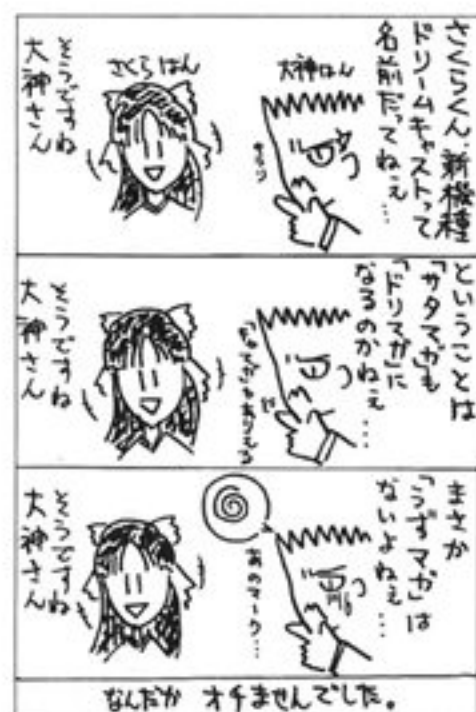 さくらくん、新機種
ドリームキャストって
名前だってねえ…
大神はん
キラリ
さくらはん
そうですね
大神さん
ということは
「サタマガ」も
「ドリマガ」に
なるのかねえ…
そうですね
大神さん
まさか
「うずマガ」は
ないよねえ…
あのマーク…
そうですね
大神さん
なんだか オチませんでした。